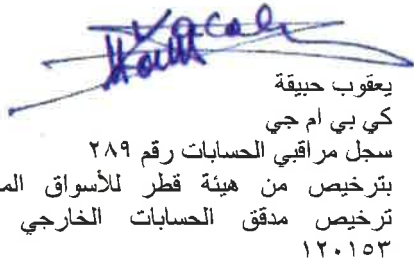 يعقوب حبيقة
كي بي ام جي
سجل مراقبي الحسابات رقم ٢٨٩
بترخيص من هيئة قطر للأسواق
ترخيص مدقق الحسابات الخارجي
١٢٠١٥٣